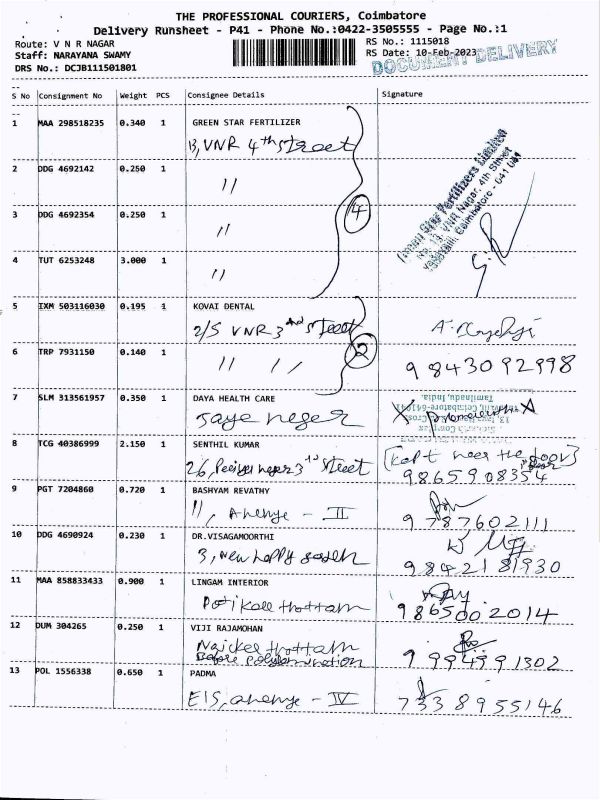 THE PROFESSIONAL COURIERS, Coimbatore
Delivery Runsheet - P41 - Phone No.:0422-3505555 - Page No.:1
Route: V N R NAGAR
RS No.: 1115018
Staff: NARAYANA SWAMY
RS Date: 10-Feb-2023
DRS No.: DCJB111501801
DOCUMENT DELIVERY
S No Consignment No Weight PCS Consignee Details Signature
1 MAA 298518235 0.340 1 GREEN STAR FERTILIZER
13, VNR 4th street
2 DDG 4692142 0.250 1
11
3 DDG 4692354 0.250 1
11
4
4 TUT 6253248 3.000 1
11
Green Star Fertilizers Limited
No. 13, VNR Nagar, 4th Street
Vadavalli, Coimbatore - 641 041
5 IXM 503116030 0.195 1 KOVAI DENTAL
2/5 VNR 3rd street
2
6 TRP 7931150 0.140 1
11 11
98430 92998
7 SLM 313561957 0.350 1 DAYA HEALTH CARE
Coimbatore-641041
Tamilnadu, India.
8 TCG 40386999 2.150 1 SENTHIL KUMAR
3rd street
(kept near the door)
98659 08354
9 PGT 7204860 0.720 1 BASHYAM REVATHY
11, Ananye - II
9787602111
10 DDG 4690924 0.230 1 DR.VISAGAMOORTHI
3, New happy
9842181930
11 MAA 858833433 0.900 1 LINGAM INTERIOR
thottam
9865002014
12 DUM 304265 0.250 1 VIJI RAJAMOHAN
Naicker thottam
Before
9994991302
13 POL 1556338 0.650 1 PADMA
E15, ananye - IV
7338955146